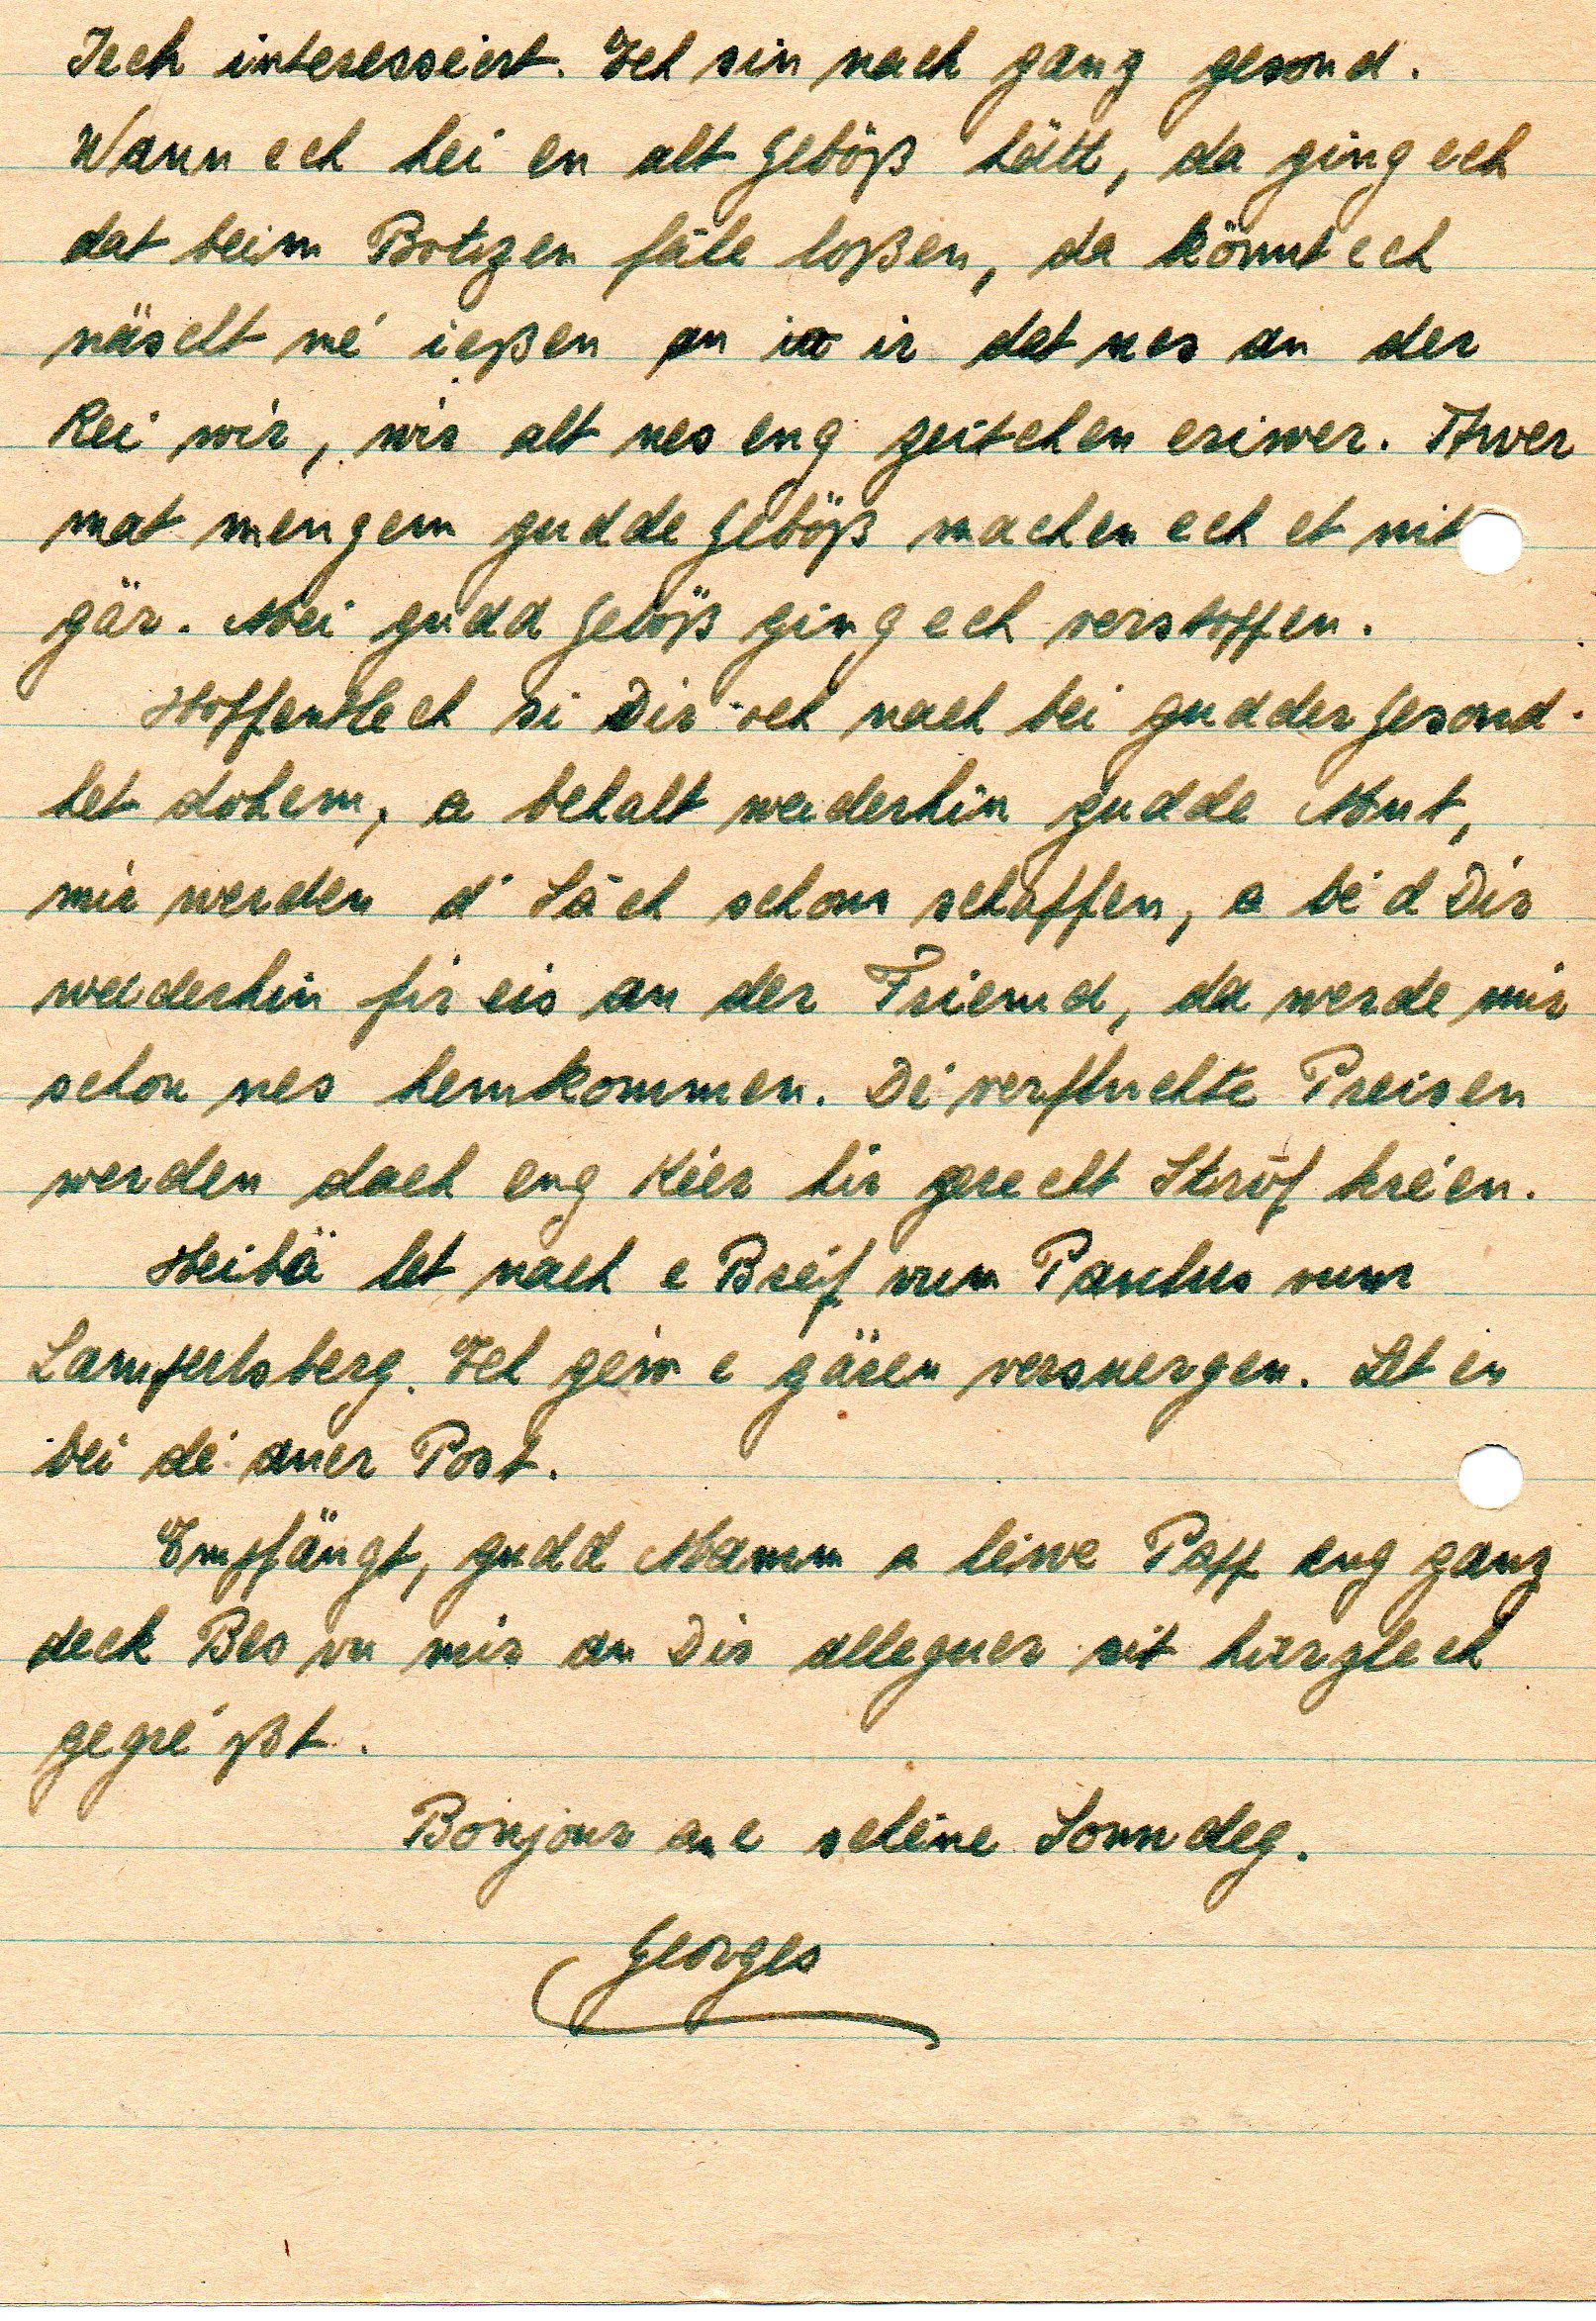 Iech interesséiert. Ech sin nach ganz gesond.
Wann ech hei en alt Geböß hätt, da ging ech
dat beim Botzen fäle loßen, da könnt ech
näscht mé ießen an ir dat nes an der
Rei wir, wir alt nes eng zeitchen eriwer. Awer
mat mengem gudde Geböß machen ech et nit
gär. Mei gudd Geböß ging ech verstoffen.
Hoffentlech si Dir och nach bei gudder Gesond-
het dohem, a behalt weiderhin gudde Mut,
mir werden d' Säch schons schaffen, a bé d Dir
weiderhin fir eis an der Friemd, da werde mir
schon nes hemkommen. Dé verfluchte Preisen
werden dach eng Kéer hir gerecht Strôf kréen.
Heibä let nach e Bréif vum Paulus vum
Lampertsberg. Ech géiw e gären versuergen. Let en
bei dé aner Post.
Empfängt, gudd Mamm a léiwe Papp eng ganz
deck Bes vu mir an Dir alleguer sit hierzlech
gegré ßt.
Bonjour an e schéine Sonndeg.
Georges